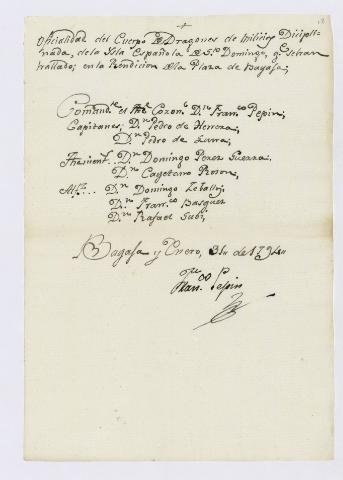 +
Oficialidad del Cuerpo de Dragones de Milicias Disipli-
nada, de la Isla Española de Sto. Domingo, q. se hran
hallado; en la Rendicion de la Plaza de Bayajá;
Comand.te el Coron.l Dn. Fran.co Pepin;
Capitanes; Dn. Pedro de Herrera;
Dn. Pedro de
Thenient. Dn. Domingo Perez Guerra
Dn. Cayetano
Alf.z... Dn. Domingo
Dn. Fran.co Basquez
Dn. Rafael
Bayajá y Enero, 31 de 1794
Fran.co Pepin